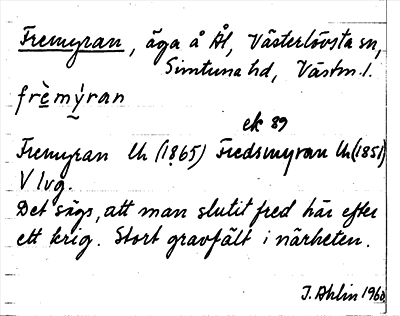 Fremyran, äga å Ål, Västerlövsta sn,
Simtuna hd, Västm. l.
frèmýran
ek 89
Fremyran lh (1865) Fredsmyran lh (1851)
V lvg.
Det sägs, att man slutit fred här efter
ett krig. Stort gravfält i närheten.
I. Ahlin 1960